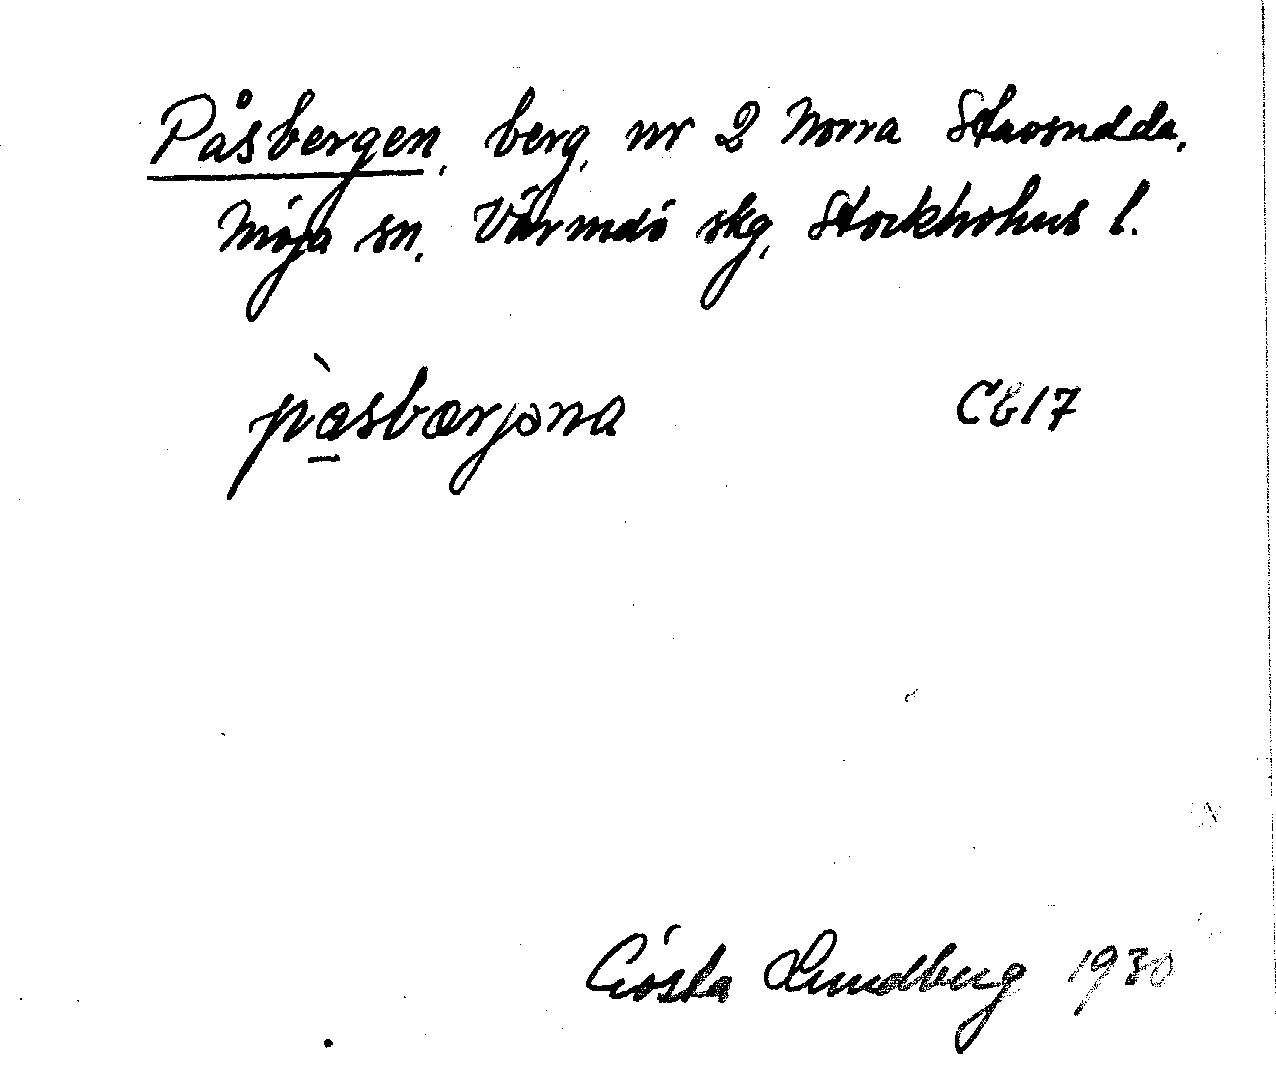 Påsbergen, berg, nr 2 Norra Stavsudda,
Möja sn, Värmdö skg, Stockholms l.
pæ̱̀sbærjəna CE17
Gösta Lundberg 1930